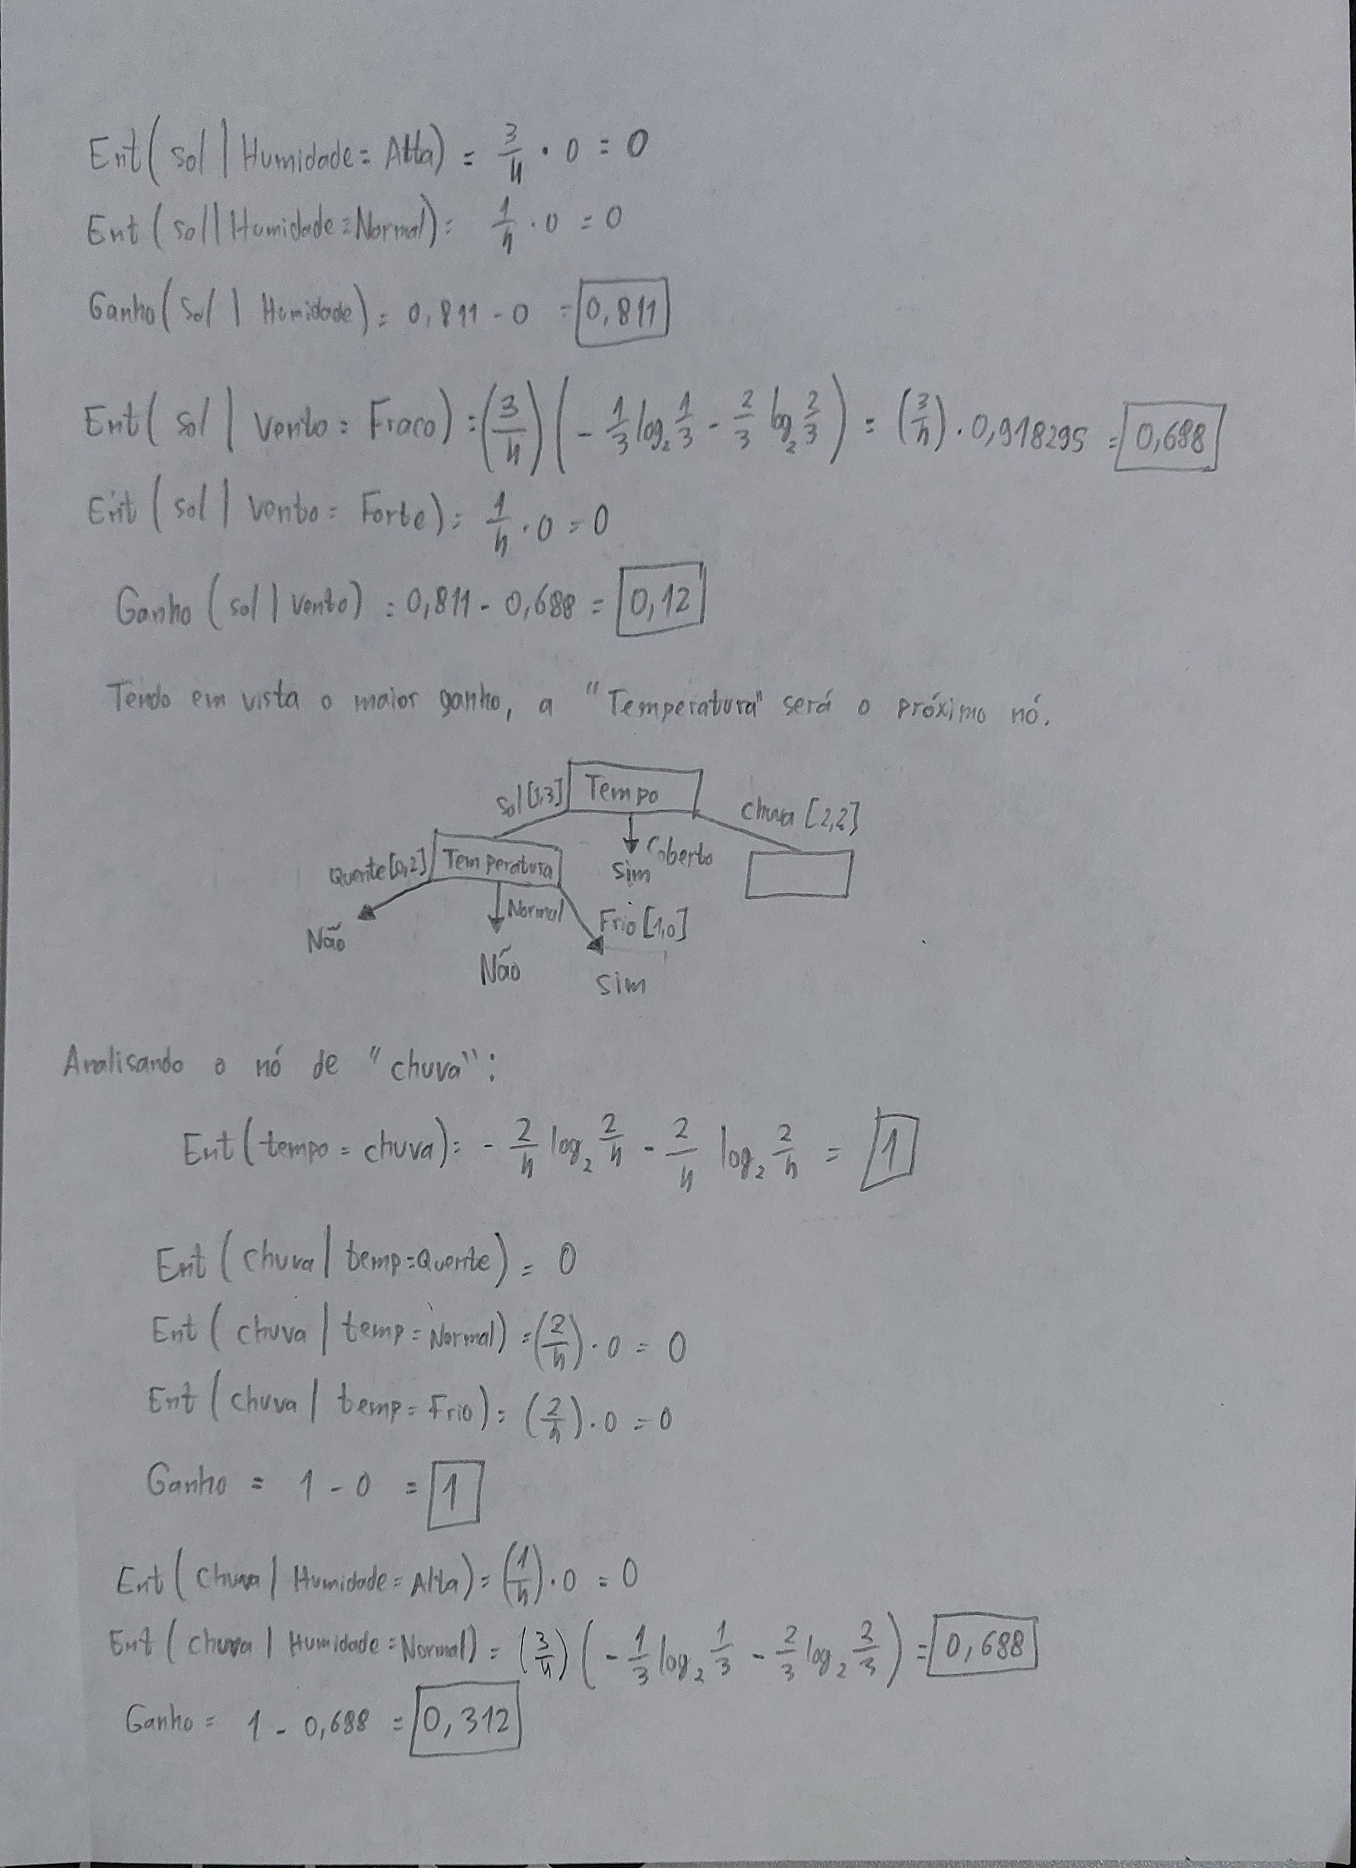 Ent(sol | Humidade = Alta) = 3/4 · 0 = 0
Ent(sol | Humidade = Normal) = 1/4 · 0 = 0
Ganho(Sol | Humidade) = 0,811 - 0 = 0,811
Ent(sol | Vento = Fraco) = (3/4)(-1/3 log₂ 1/3 - 2/3 log₂ 2/3) = (3/4) · 0,918295 = 0,688
Ent(sol | Vento = Forte) = 1/4 · 0 = 0
Ganho(sol | Vento) = 0,811 - 0,688 = 0,12
Tendo em vista o maior ganho, a "Temperatura" será o próximo nó.
sol [1,3] Tempo chuva [2,2]
Quente [0,2] Temperatura Sim Coberto
Não Normal Frio [1,0]
Não Sim
Analisando o nó de "chuva":
Ent(tempo = chuva) = -2/4 log₂ 2/4 - 2/4 log₂ 2/4 = 1
Ent(chuva | temp = Quente) = 0
Ent(chuva | temp = Normal) = (2/4) · 0 = 0
Ent(chuva | temp = Frio) = (2/4) · 0 = 0
Ganho = 1 - 0 = 1
Ent(chuva | Humidade = Alta) = (1/4) · 0 = 0
Ent(chuva | Humidade = Normal) = (3/4)(-1/3 log₂ 1/3 - 2/3 log₂ 2/3) = 0,688
Ganho = 1 - 0,688 = 0,312